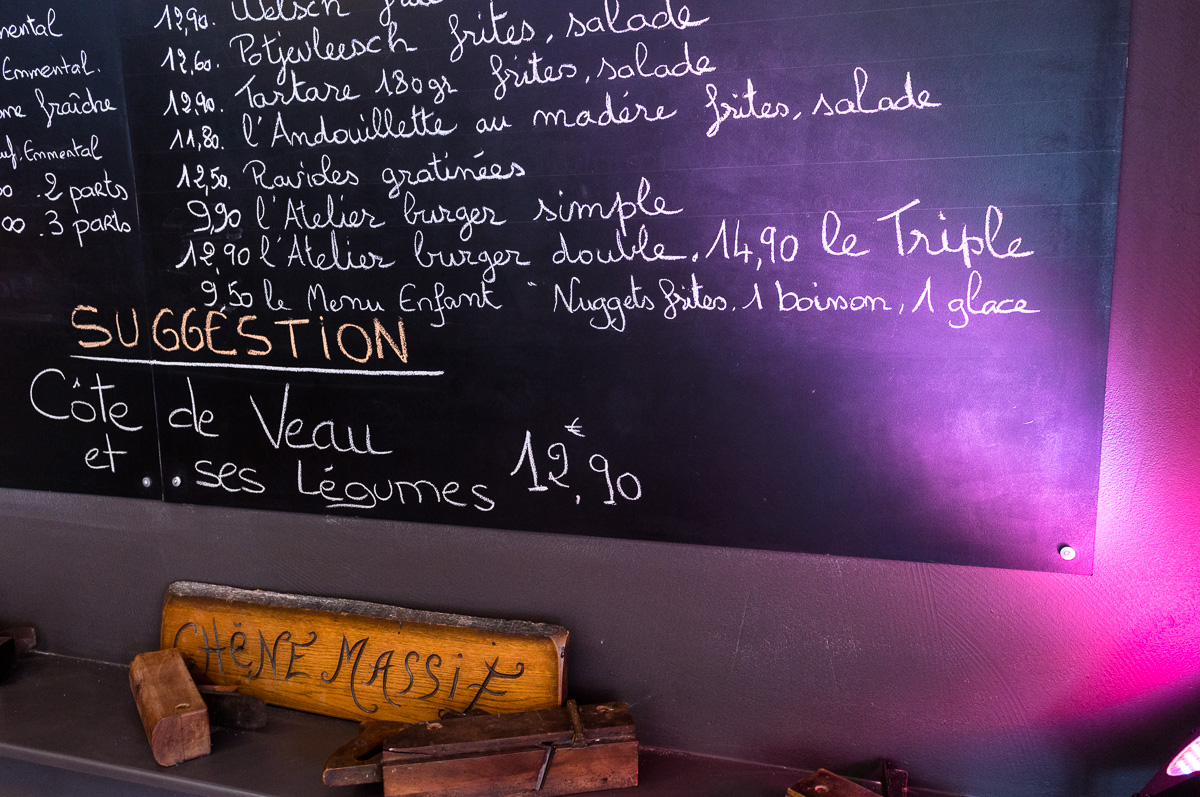 mental
Emmental.
fraîche
Emmental
. 2 parts
00 . 3 parts
12,90. Welsch
12,60. Potjevleesch frites, salade
12,90. Tartare 180gr frites, salade
11,80. l'Andouillette au madére frites, salade
12,50. Ravioles gratinées
9,90 l'Atelier burger simple
12,90 l'Atelier burger double. 14,90 le Triple
9,50 le Menu Enfant " Nuggets frites. 1 boisson, 1 glace
SUGGESTION
Côte de Veau
et ses Légumes 12,90 €
CHÊNE MASSIF